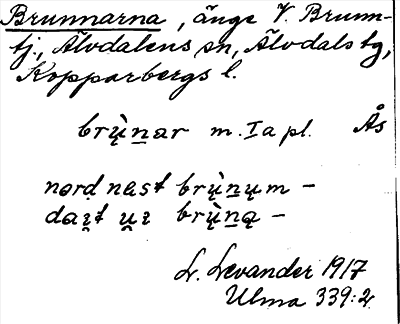 Brunnarna, änge V. Brunn-
tj., Älvdalens sn, Älvdals tg,
Kopparbergs l.
brų̀n̠ar m. Ia pl. Ås
nord næst brų̀n̠ųm –
brų̀n̠ą –
L. Levander 1917
Ulma 339:2